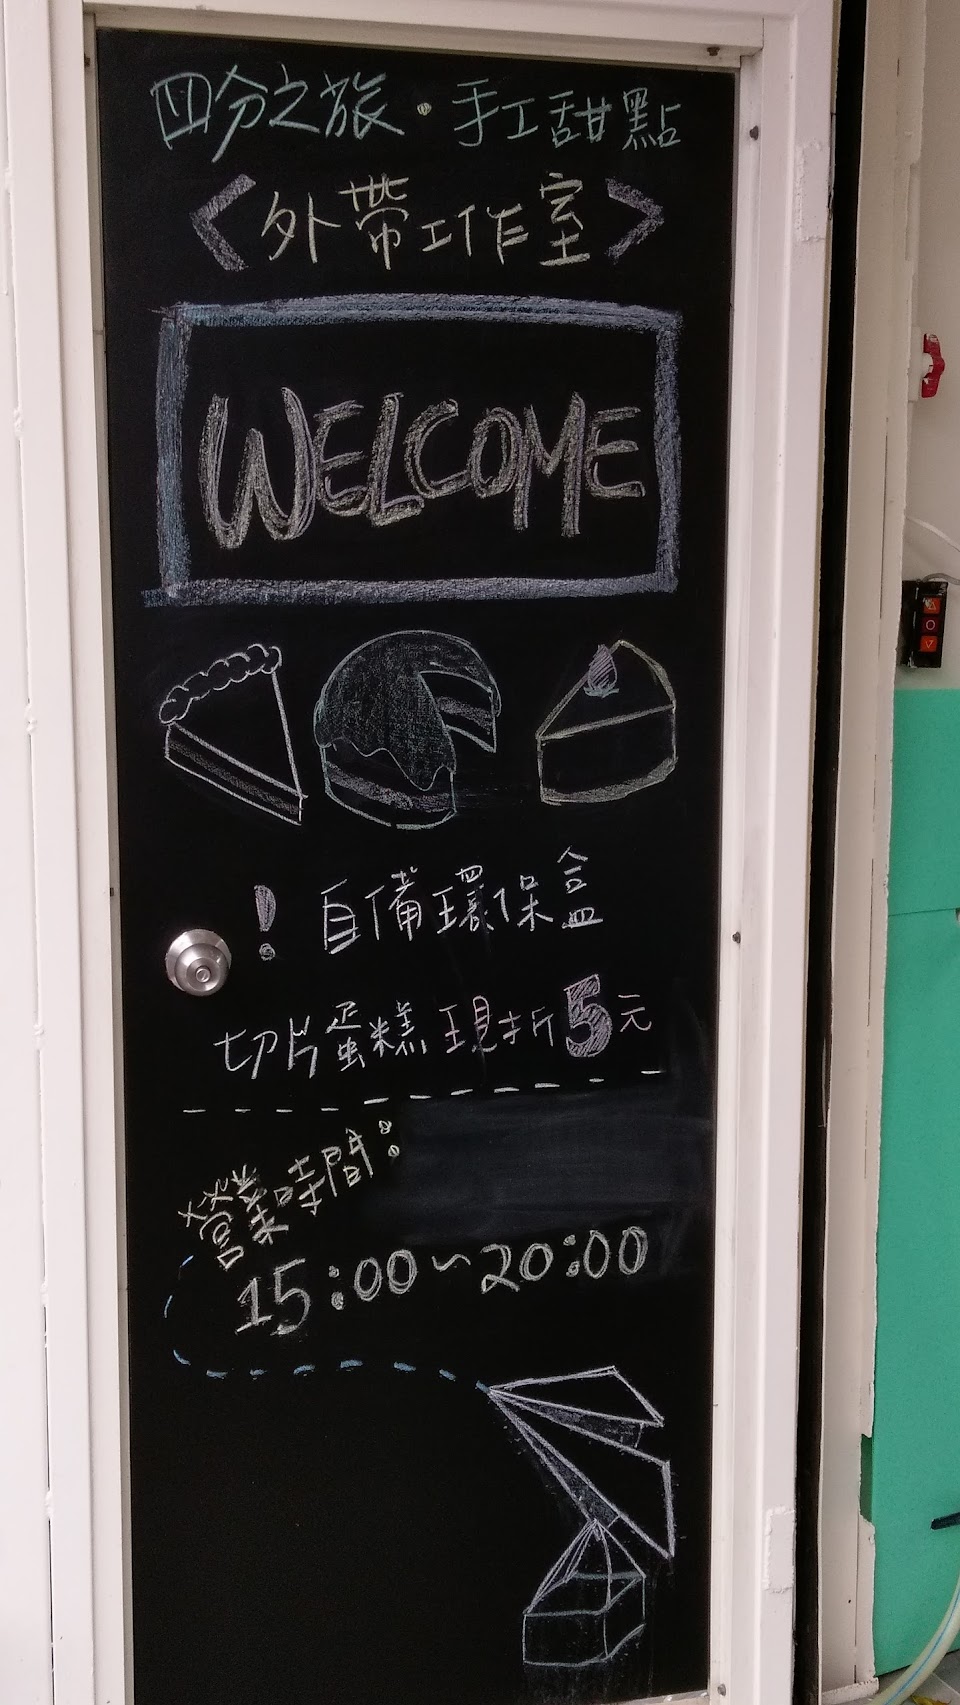 四分之旅·手工甜點
<外帶工作室>
WELCOME
! 自備環保盒
切片蛋糕現折5元
營業時間:
15:00~20:00